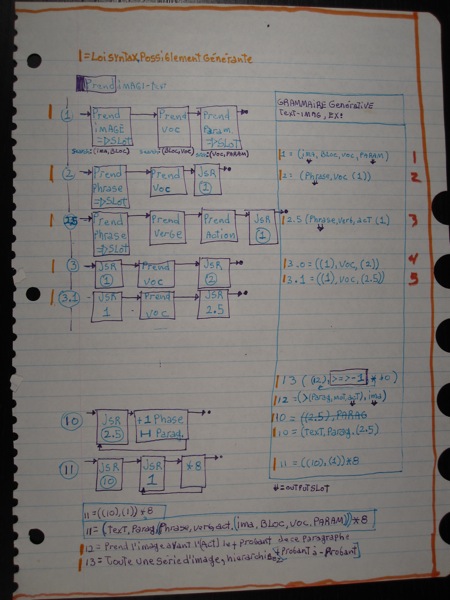 1=Loi Syntax, Possiblement Générante
Prend iMAGI-Not
GRAMMAIRE Générative
Text-IMAG, EX:
1
Prend
iMAGE
=>SLOT
Prend
VOC
Prend
Param.
=>SLOT
Search: (ima, BLOC)
Search: (BLOC, VOC)
(VOC, PARAM)
1 = (ima, BLOC, voc, PARAM)
1
2
Prend
Phrase
=>SLOT
Prend
VOC
JSR
1
2 = (Phrase, voc (1))
2
2.5
Prend
Phrase
=>SLOT
Prend
Verbe
Prend
Action
JSR
1
2.5 (Phrase, verb, act (1)
3
3
JSR
1
Prend
VOC
JSR
2
3.0 = ((1), voc, (2))
4
3.1
JSR
1
Prend
VOC
JSR
2.5
3.1 = ((1), voc, (2.5))
5
13 ((12), >=>-1, * 10)
12 = (>(Param, mot, act), ima)
10
JSR
2.5
+1 Phase
Parag.
10 = ((2.5), PARAG
10 = (TEXT, Parag, (2.5)
11
JSR
10
JSR
1
*8
11 = ((10), (1)) *8
=OUTPUTSLOT
11 = ((10), (1)) *8
11 = (Text, Parag (Phrase, verb, act, (ima, BLOC, VOC, PARAM)) *8
12 = Prend l'image ayant l'(Act) le + probant de ce Paragraphe
13 = Toute une série d'image, hierarchisé + Probant à - Probant